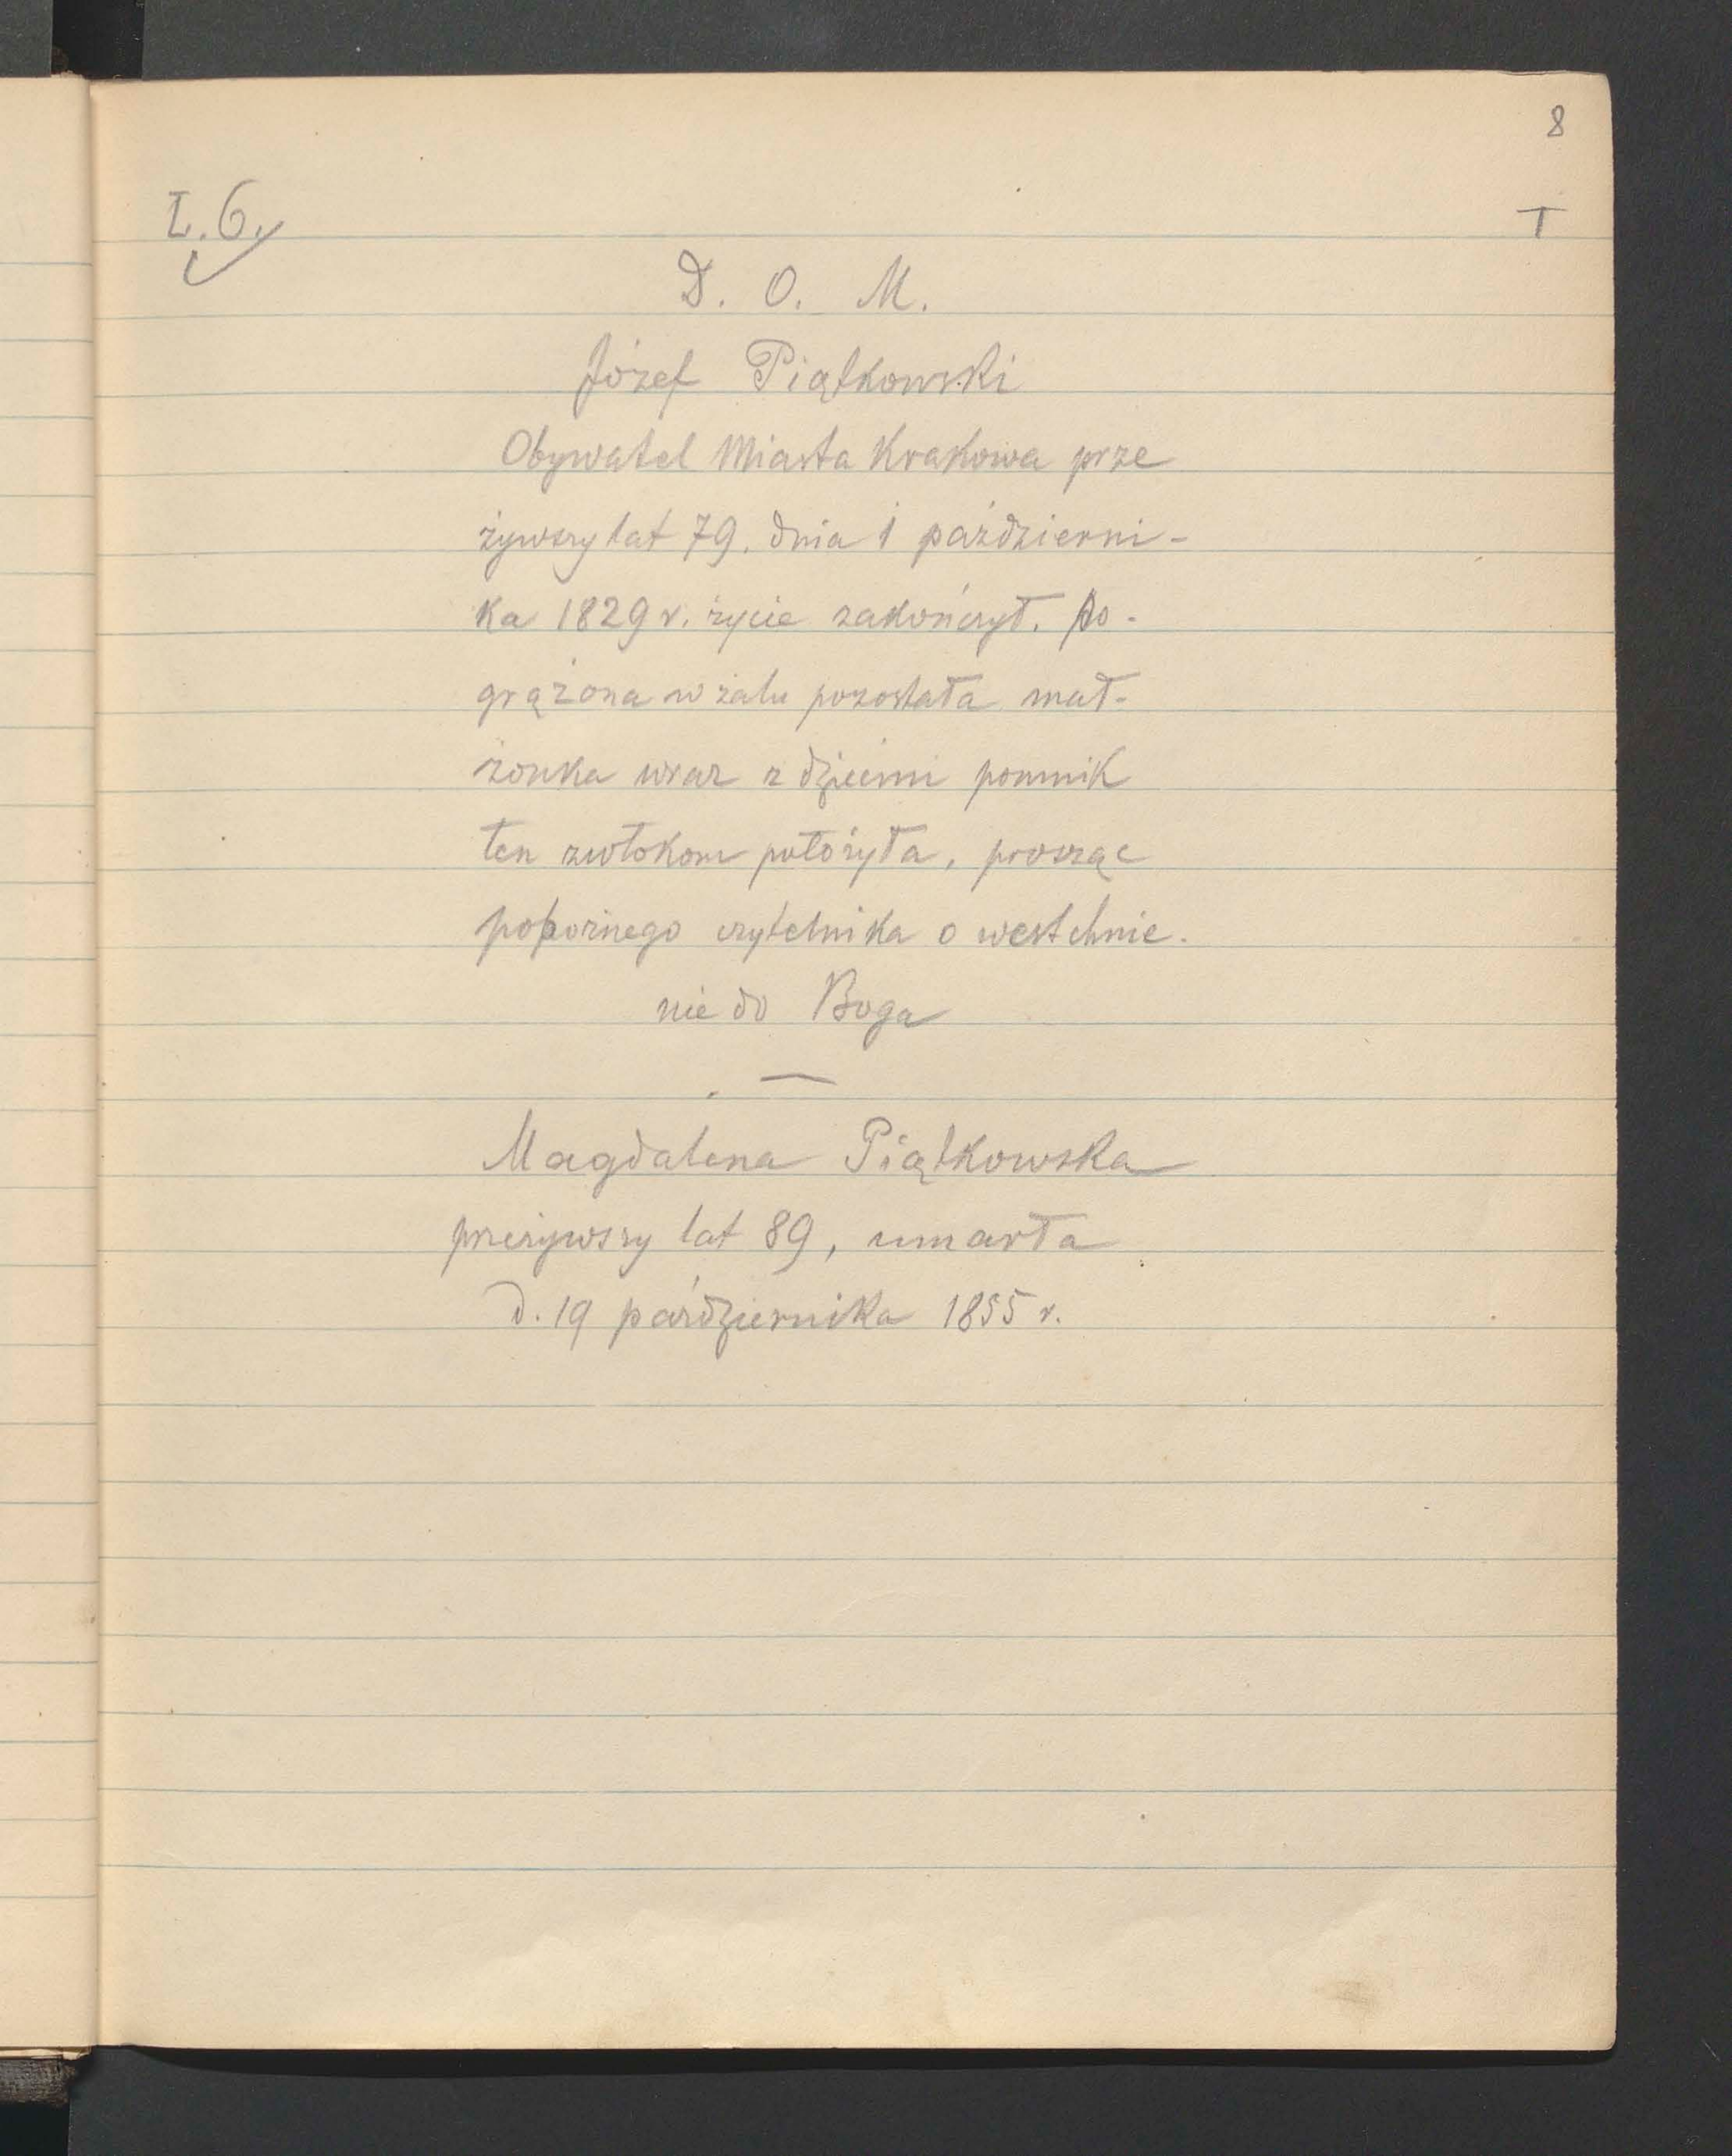 8
L. 6.
T
D. O. M.
Józef Piątkowski
Obywatel Miasta Krakowa prze
żywszy lat 79. dnia 1 październi-
ka 1829 r. życie zakończył. Po-
grążona w żalu pozostała mał-
żonka wraz z dziećmi pomnik
ten zwłokom położyła, prosząc
pobożnego czytelnika o westchnie-
nie do Boga
—
Magdalena Piątkowska
przeżywszy lat 89, umarła
d. 19 października 1855 r.